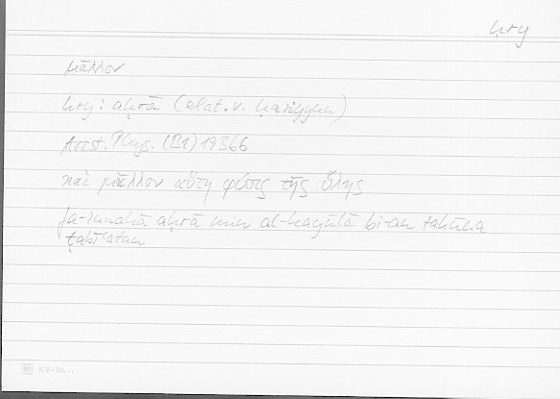 ḥry
μᾶλλον
ḥry: aḥrā (elat. v. ḥarīyyun)
Arist. Phys. (B1) 193b6
καὶ μᾶλλον αὕτη φύσις τῆς ὕλης
fa-innahā aḥrā min al-hayūlā bi-an takūna
ṭabīʿatan